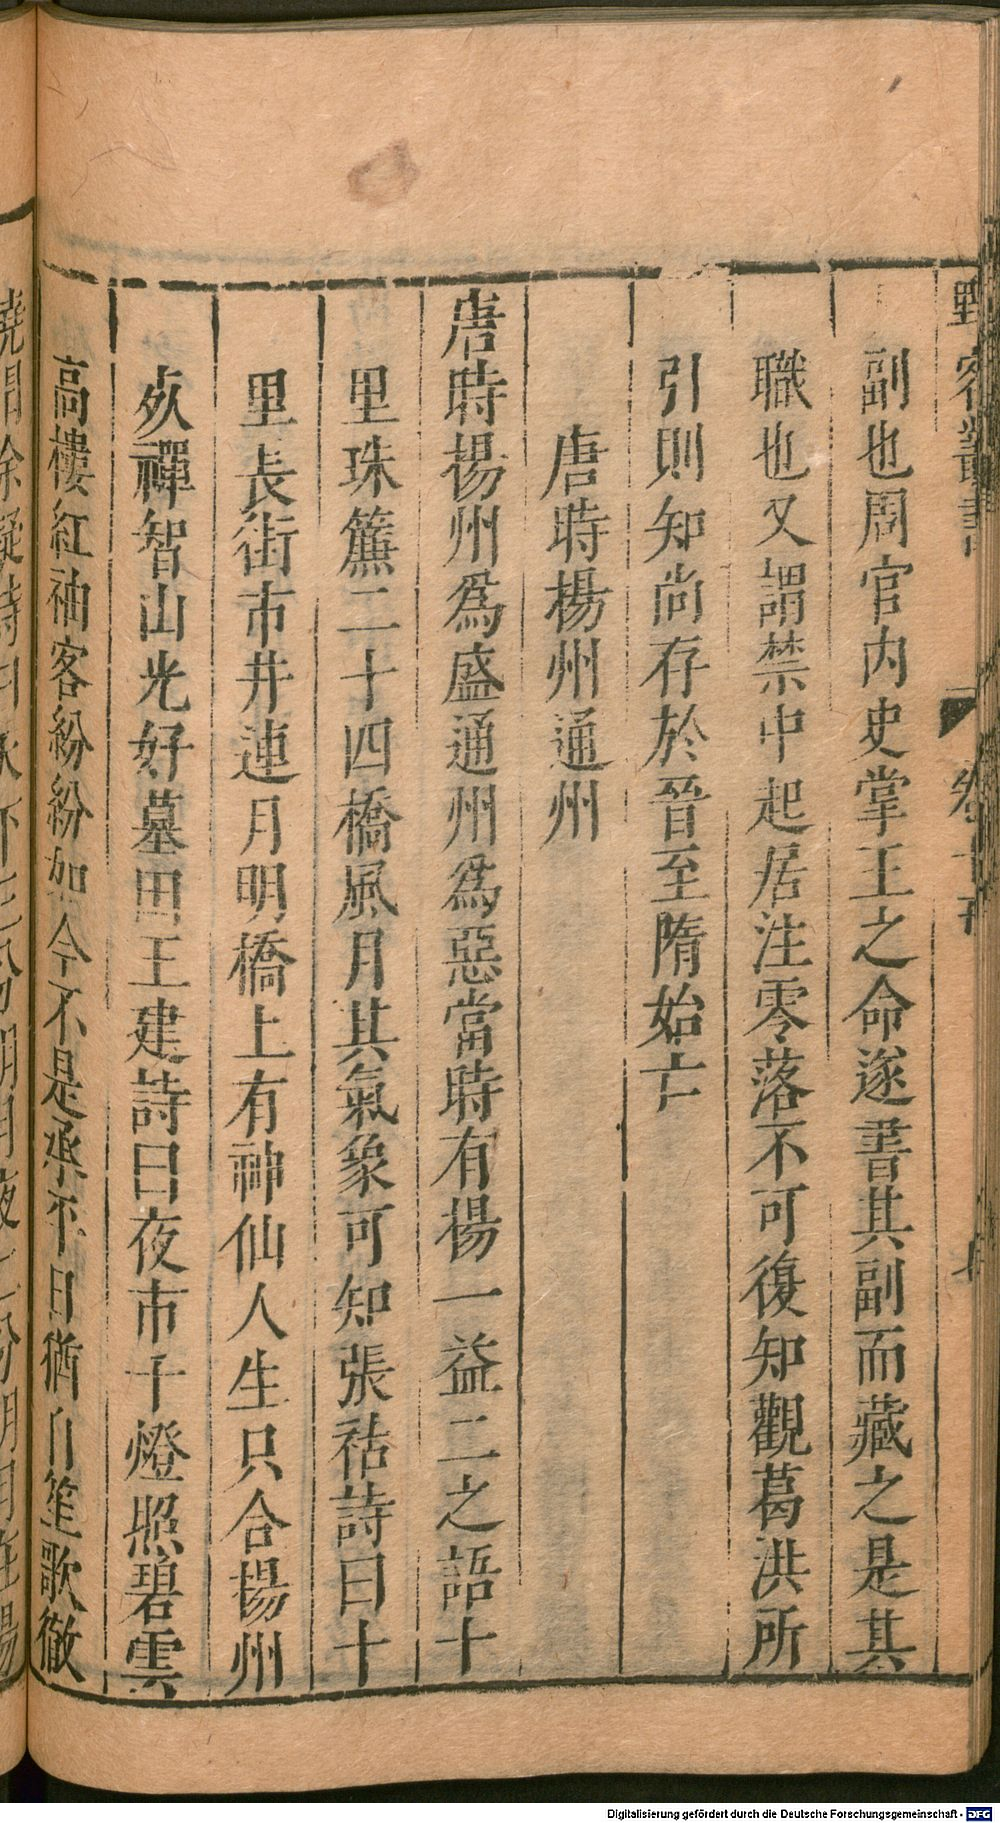 野客叢書
副也周官内史掌王之命遂書其副而藏之是其
職也又謂禁中起居注零落不可復知觀葛洪所
引則知尚存於晉至隋始亡
唐時楊州通州
唐時揚州為盛通州為惡當時有揚一益二之語十
里珠簾二十四橋風月其氣象可知張祜詩曰十
里長街市井連月明橋上有神仙人生只合揚州
死禪智山光好墓田王建詩曰夜市千燈照碧雲
高樓紅袖客紛紛如今不是承平日猶自笙歌徹
Digitalisierung gefördert durch die Deutsche Forschungsgemeinschaft - DFG